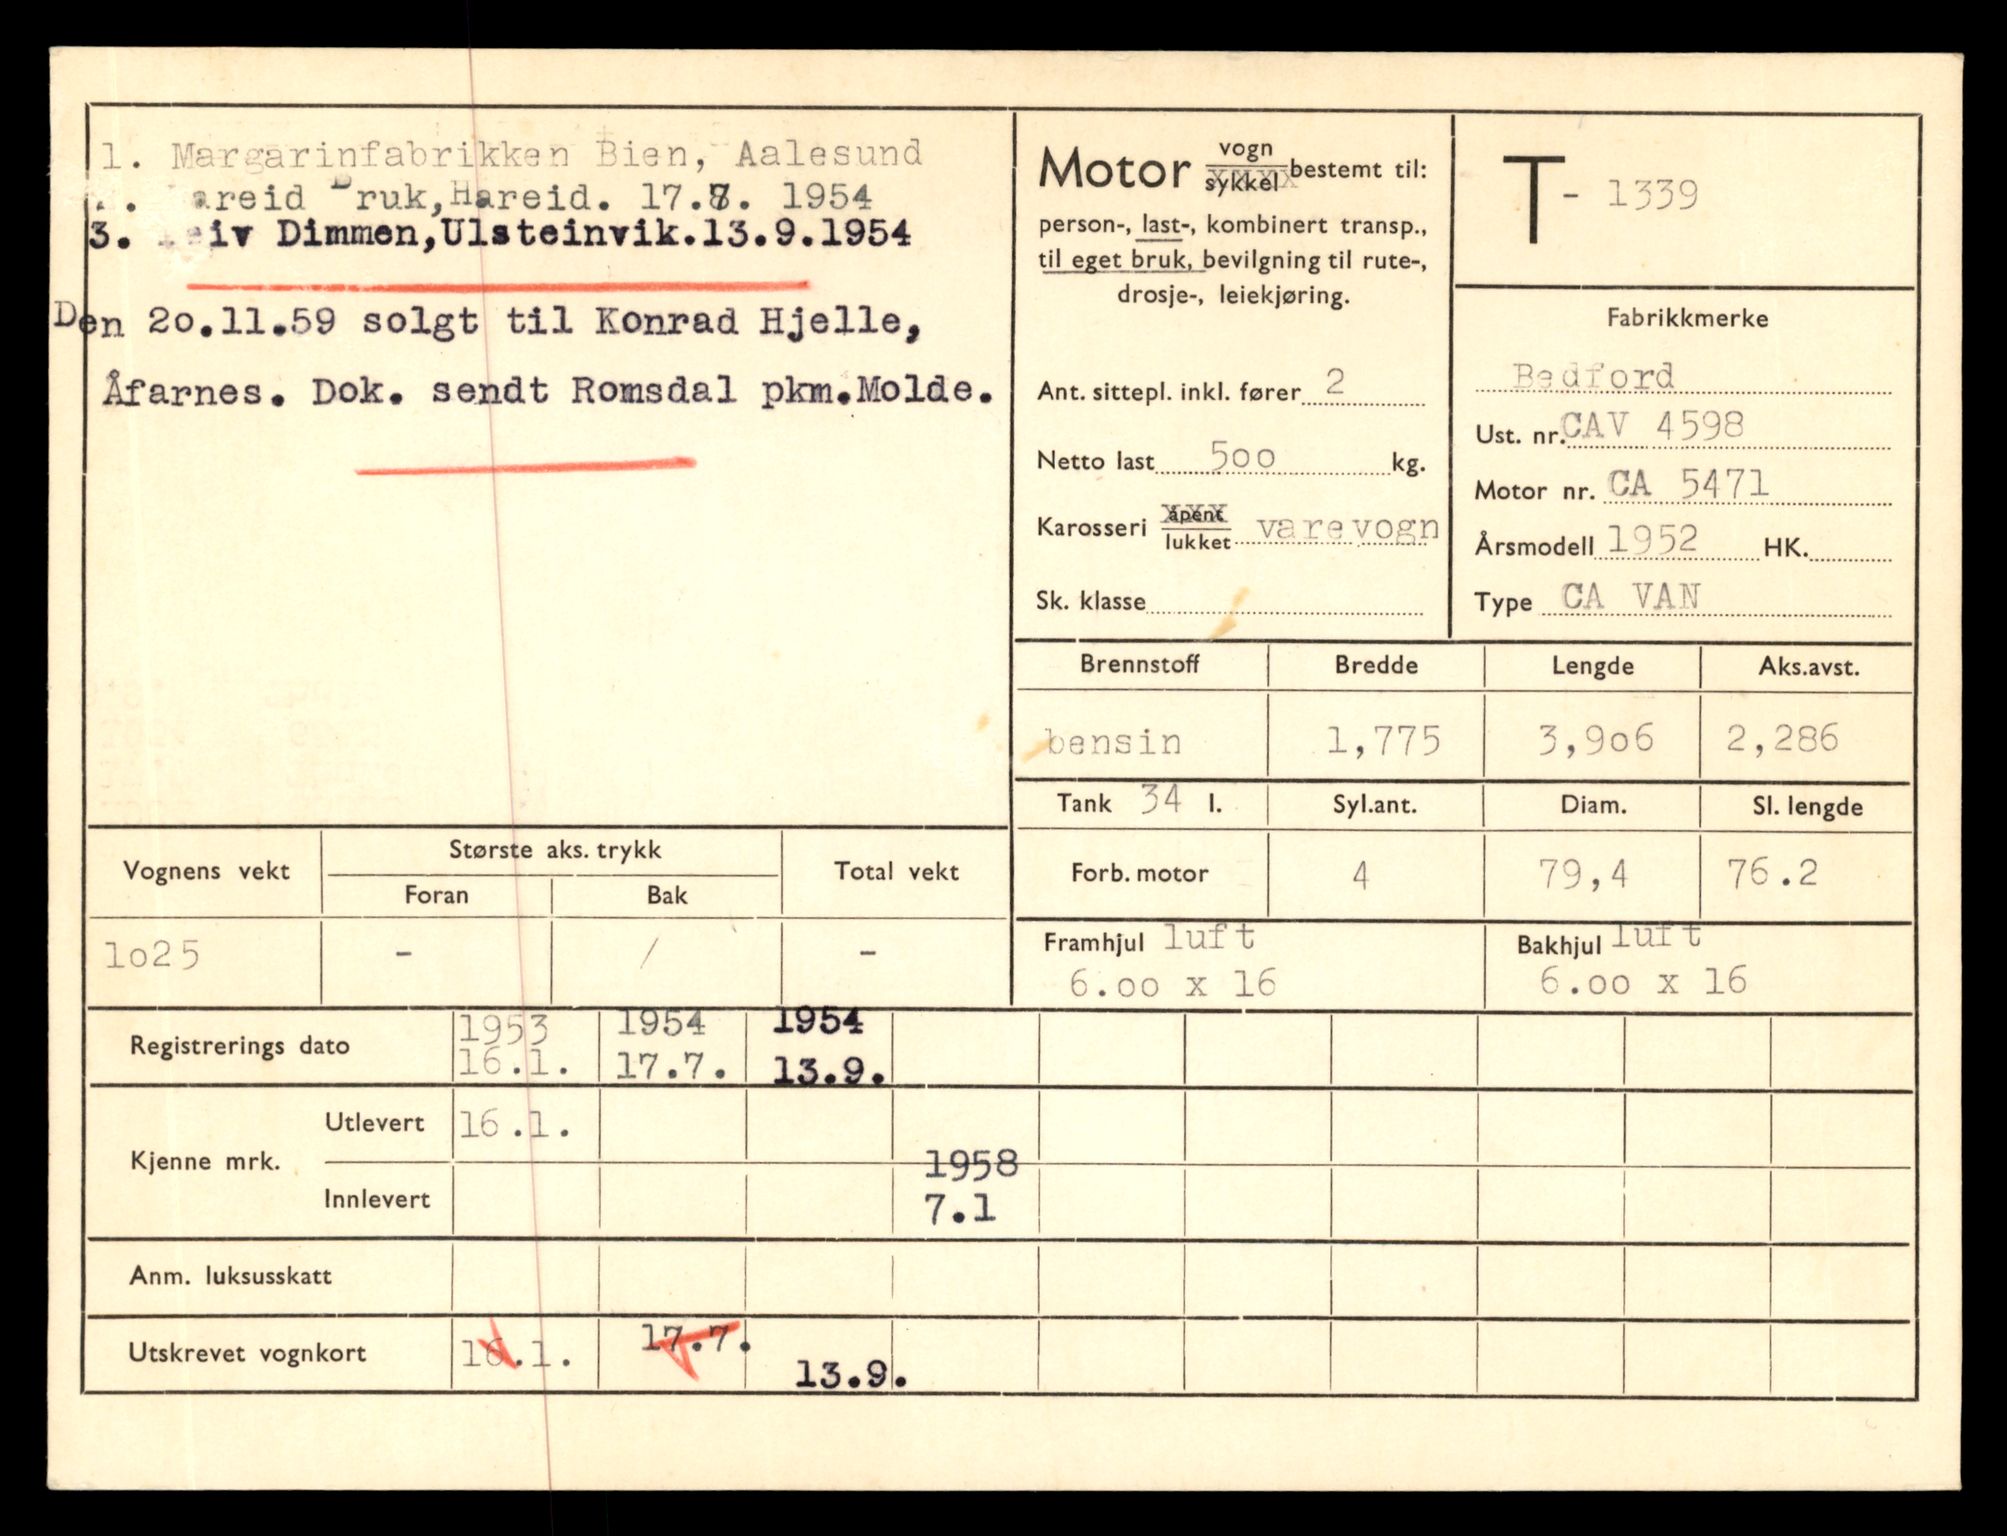 1. Margarinfabrikken Bien, Aalesund
areid Bruk, Hareid. 17.7. 1954
3. Leiv Dimmen, Ulsteinvik. 13.9.1954
Den 2o.11.59 solgt til Konrad Hjelle,
Åfarnes. Dok. sendt Romsdal pkm. Molde.
Motor vogn
sykkel bestemt til:
person-, last-, kombinert transp.,
til eget bruk, bevilgning til rute-,
drosje-, leiekjøring.
Ant. sittepl. inkl. fører 2
Netto last 5oo kg.
Karosseri åpent
lukket varevogn
Sk. klasse
T - 1339
Fabrikkmerke
Bedford
Ust. nr. CAV 4598
Motor nr. CA 5471
Årsmodell 1952 HK.
Type CA VAN
Brennstoff Bredde Lengde Aks.avst.
bensin 1,775 3,9o6 2,286
Tank 34 l. Syl.ant. Diam. Sl. lengde
Forb. motor 4 79,4 76.2
Framhjul luft
6.oo x 16
Bakhjul luft
6.oo x 16
Vognens vekt Største aks. trykk Total vekt
Foran Bak
1o25 - / -
Registrerings dato 1953 1954 1954
16.1. 17.7. 13.9.
Kjenne mrk. Utlevert 16.1.
Innlevert 1958
7.1
Anm. luksusskatt
Utskrevet vognkort 16.1. 17.7. 13.9.